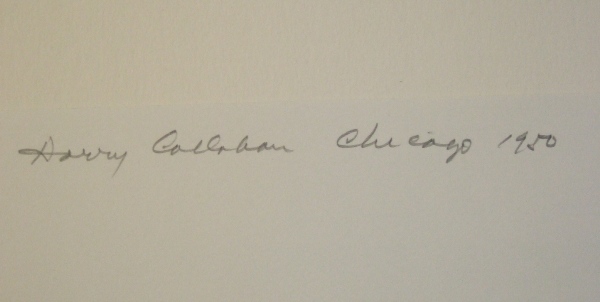 Harry Callahan Chicago 1950